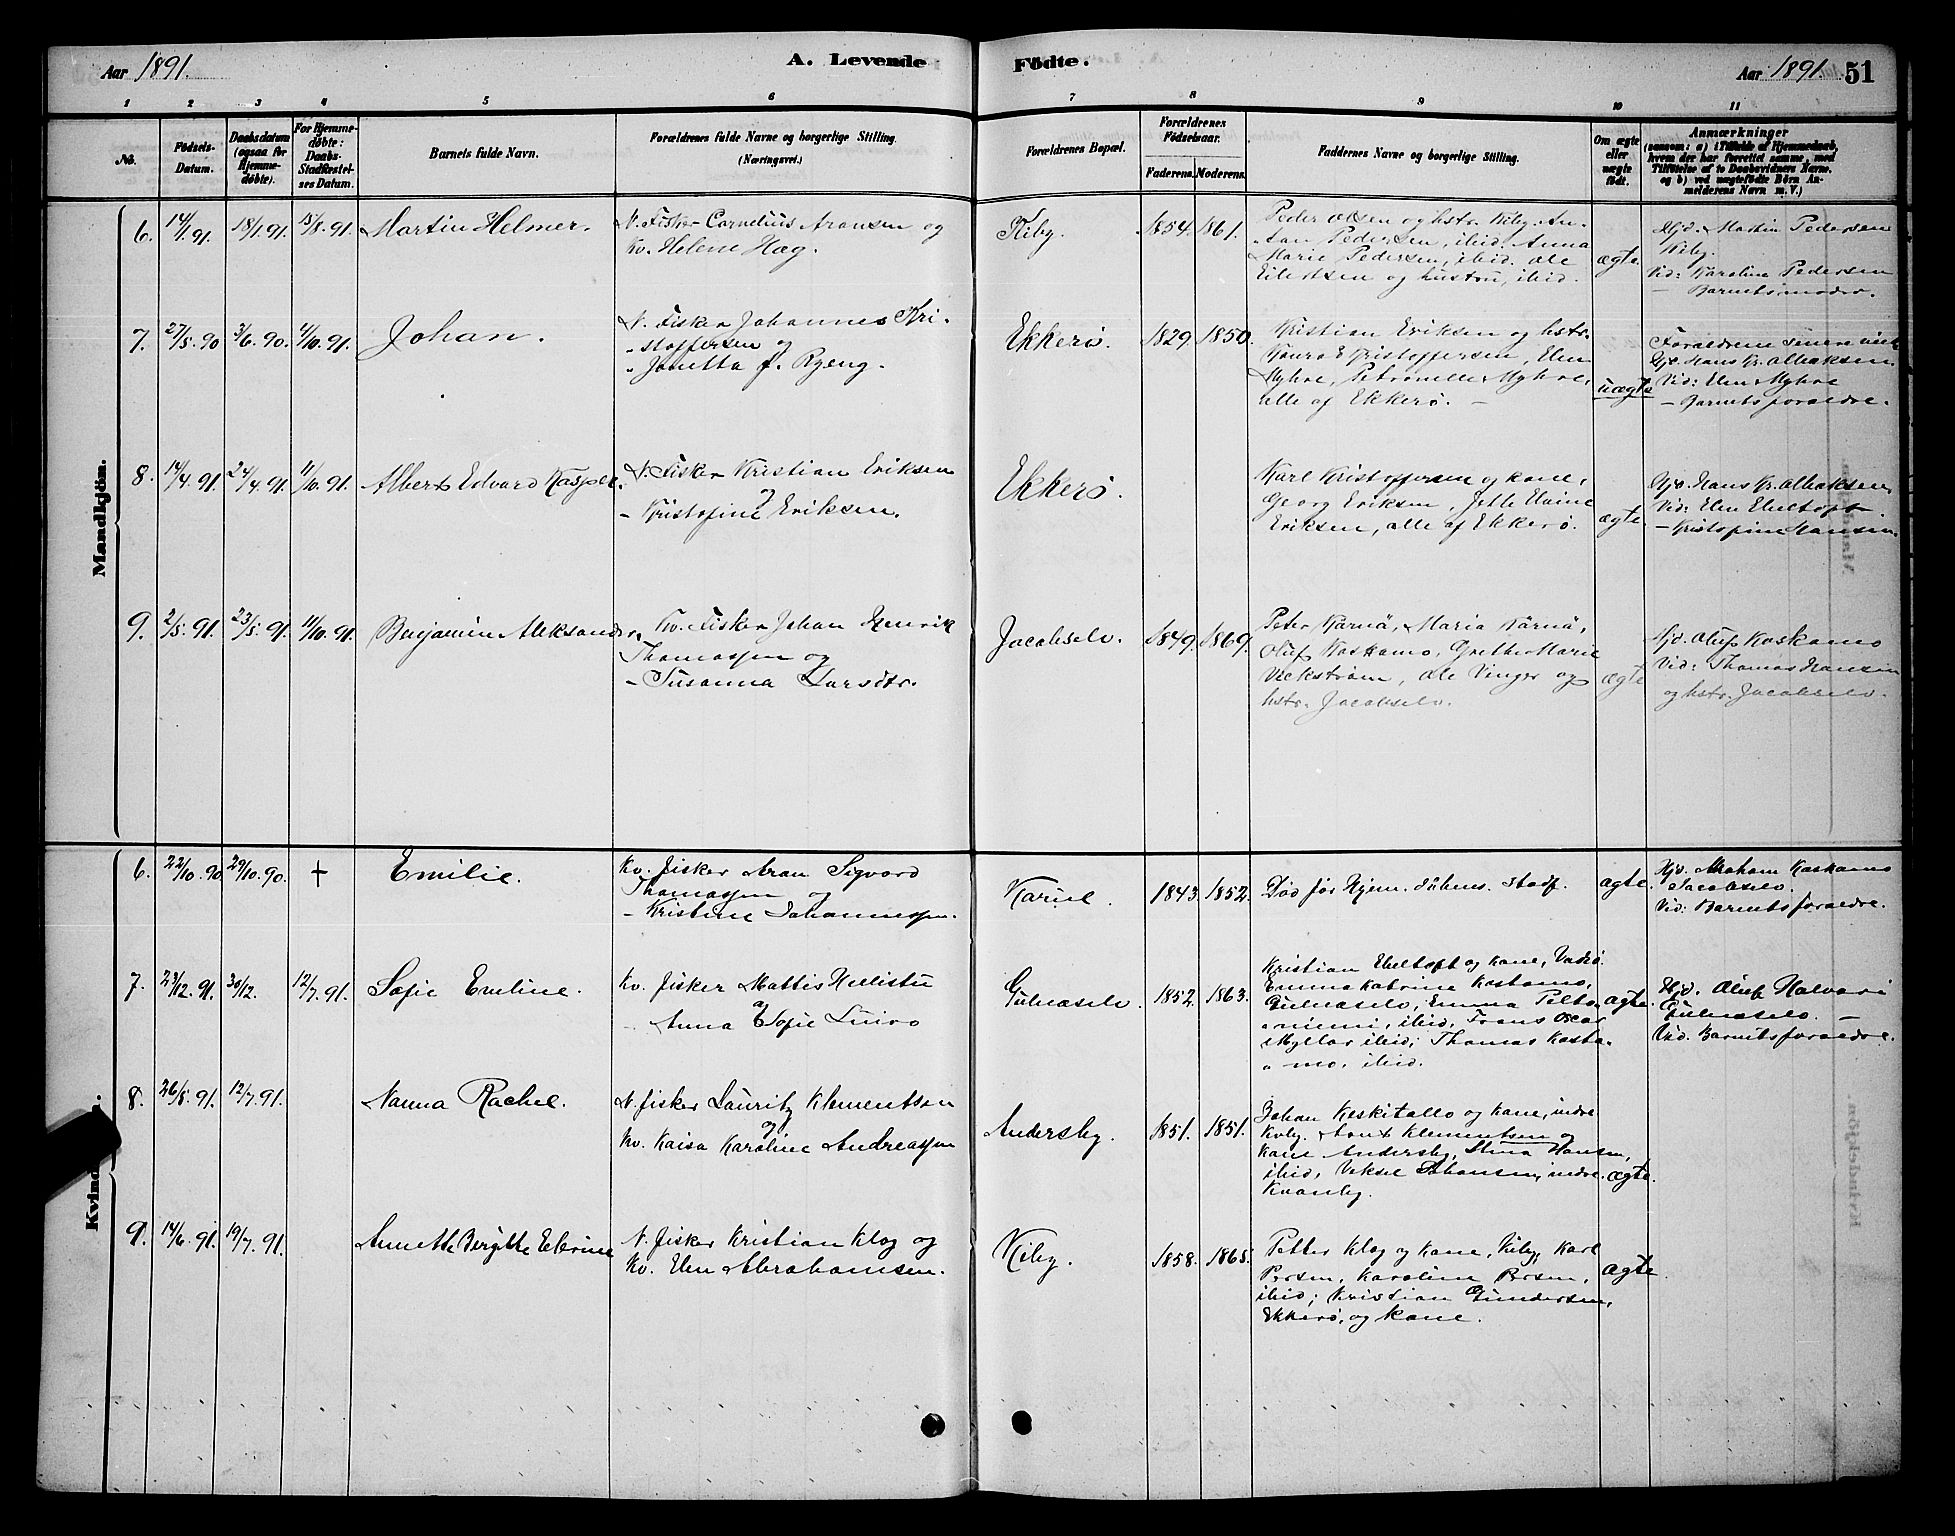 Aar 1891.
A. Levende Fødte.
Aar 1891. 51
1 2 3 4 5 6 7 8 9 10 11
No.
Fødsels-Datum.
Daabsdatum (ogsaa for Hjemme-døbte).
For Hjemme-døbte: Daabs-Stadfæstel-ses Datum.
Barnets fulde Navn.
Forældrenes fulde Navne og borgerlige Stilling. (Næringsvei.)
Forældrenes Bopæl.
Forældrenes Fødselsaar.
Faderens. Moderens.
Faddernes Navne og borgerlige Stilling.
Om ægte eller uægte født.
Anmærkninger
(saasom: a) i Tilfælde af Hjemmedaab, hvem der har forrettet samme, med Tilføielse af to Daabsvidners Navne, og b) ved uægtefødte Børn Anmelderens Navn m. V.)
Mandkjön.
6. 14/1 91. 18/1 91. 15/8 91. Martin Helmer.
N. Fisker Cornelius Aronsen og
Kv. Helene Hag.
Kiby. 1854. 1861.
Peder Olsen og hstr. Kiby. An-
ton Pedersen, ibid. Anna
Marie Pedersen, ibid. Ole
Eilertsen og hustru, ibid.
ægte.
Hjd. Martin Pedersen
Kiby.
Vid: Karoline Pedersen
— Barnets moder.
7. 27/5 90 3/6. 90. 11/10. 91. Johan.
N. Fisker Johannes Kri-
stoffersen og
" Janetta f. Ryeng.
Ekkerø. 1829. 1850.
Kristian Eriksen og hstr.
Kristoffersen, Elen
Myhre, Petronelle Myhre,
alle af Ekkerø. —
uægte
Forældrene senere
Hjd. Hans Kr.
Vid: Elen Myhre
— Barnets forældre.
8. 14/4 91. 24/4 91. 11/10. 91. Albert Edvard Kasper.
N. Fisker Kristian Eriksen
og
— Kristofine Eriksen.
Ekkerø.
Karl Kristoffersen og kone,
Georg Eriksen, Jette Elvine
Eriksen, alle af Ekkerø.
ægte.
Hjd. Hans Kr.
Vid: Elen Ebeltoft
— Kristofine Hansen.
9. 2/5. 91. 23/5. 91. 11/10. 91. Benjamin Aleksander.
Kv. Fisker Johan Henrik
Thomassen og
— Susanna Larsdtr.
Jacobselv. 1849. 1869.
Peter Kärnä, Maria Kärnä,
Oluf Kaskamo, Grethe Marie
Vickstrøm, Ole Vinger og
hstr. Jacobselv.
ægte
Hjd. Oluf Kaskamo
Vid: Thomas Hansen
og hstr. Jacobselv.
6. 22/10. 90. 29/10. 90. + Emilie.
Kv. fisker Aron Sigvard
Thomassen og
— Kristine Johannessen.
Kariel. 1843. 1852.
Død før Hjem. Stadf.
ægte.
Hjd. Abraham Kaskamo
Jacobselv.
Vid: Barnets forældre.
7. 23/12. 91. 30/12. 12/7. 91. Sofie Emeline.
Kv. fisker Mattis
og
— Anna Sofie
Gulnæselv. 1852. 1863.
Kristian Ebeltoft og kone, Vadsø.
Emma Katrine Kostamo,
Gulnæselv, Emma Pelto-
niemi, ibid, Frans Oscar
Myllar ibid; Thomas Kosta-
mo, ibid.
ægte.
Hjd. Oluf Halvari
Gulnæselv. —
Vid. Barnets forældre.
8. 26/5. 91. 12/7. 91. Nanna Rachel.
N. fisker Lauritz Klementsen
og
Kv. Kaisa Karoline Andreassen
Andersby. 1851. 1851.
Johan Keskitallo og kone, indre
Kvby. Aant Klementsen og
kone Andersby, Stina Hansen,
ibid, Veksel Johansen, indre
Kvænby.
ægte.
9. 14/6. 91. 19/7. 91. Annette Bergitte
N. fisker Kristian Klog og
Kv. Elen Abrahamsen.
Kiby. 1858. 1865.
Petter Klog og kone, Kiby, Karl
Persen, Karoline Persen,
ibid; Kristian Gundersen,
Ekkerø, og kone.
ægte.